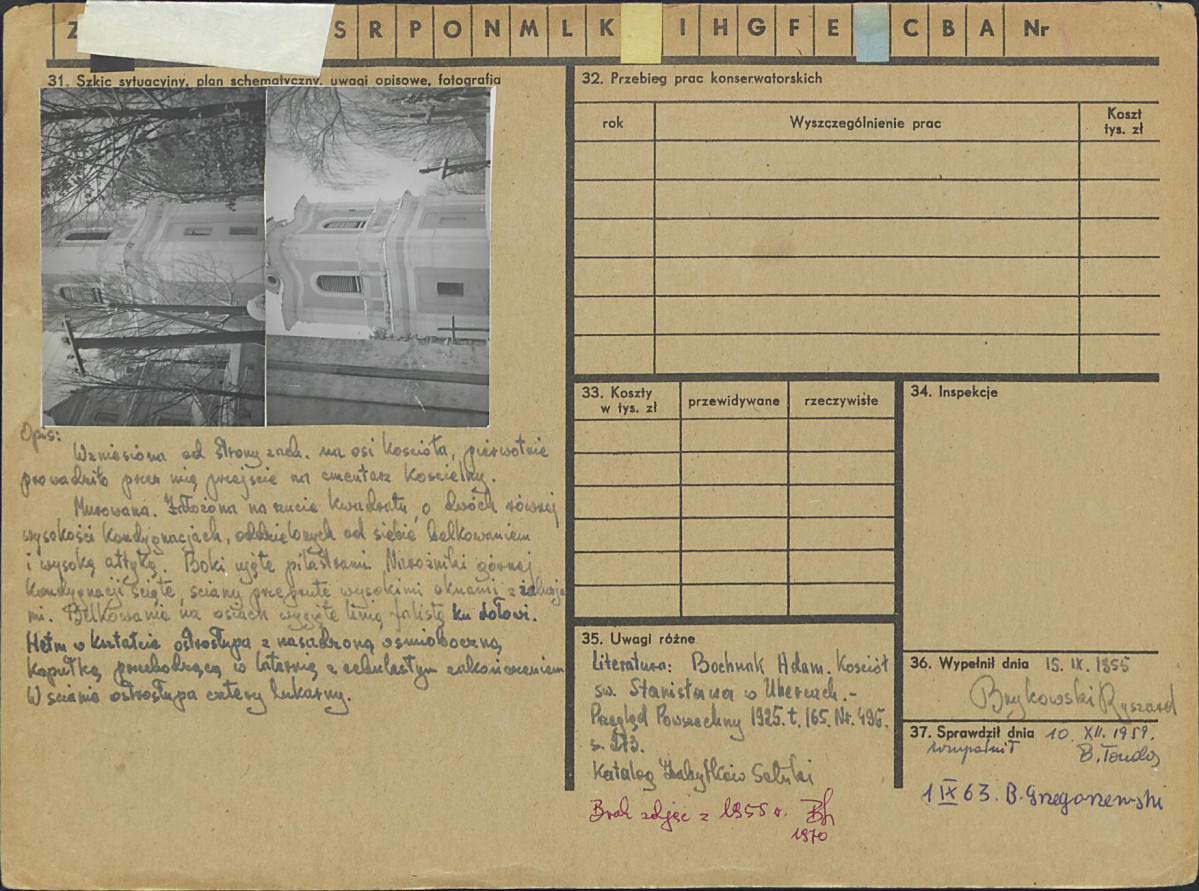 Z S R P O N M L K I H G F E C B A Nr
31. Szkic sytuacyjny, plan schematyczny, uwagi opisowe, fotografia
Opis:
Wzniesiona od strony zach. na osi kościoła, pierwotnie
prowadziło przez nią przejście na cmentarz kościelny.
Murowana. Założona na rzucie kwadratu, o dwóch równej
wysokości kondygnacjach, oddzielonych od siebie belkowaniem
i wysoką attyką. Boki ujęte pilastrami. Narożniki górnej
kondygnacji ścięte, ściany przeprute wysokimi oknami z żaluzja
mi. Belkowanie na osiach wygięte linią falistą ku dołowi.
Hełm w kształcie ostrosłupa z nasadzoną ośmioboczną
kopułką przechodzącą w latarnię z cebulastym zakończeniem
W ścianie ostrosłupa cztery lukarny.
32. Przebieg prac konserwatorskich
rok Wyszczególnienie prac Koszt
tys. zł
33. Koszty
w tys. zł przewidywane rzeczywiste
34. Inspekcje
35. Uwagi różne
Literatura: Bochnak Adam. Kościół
św. Stanisława w Uhercach.-
Przegląd Powszechny 1925. t. 165. Nr. 495.
s. 273.
Katalog Zabytków Sztuki
Brak zdjęć z 1955 r. Bh
1970
36. Wypełnił dnia 15. IX. 1955
Brykowski Ryszard
37. Sprawdził dnia 10. XII. 1959.
uzupełnił B. Tondos
1 IX 63. B. Grzegorzewski